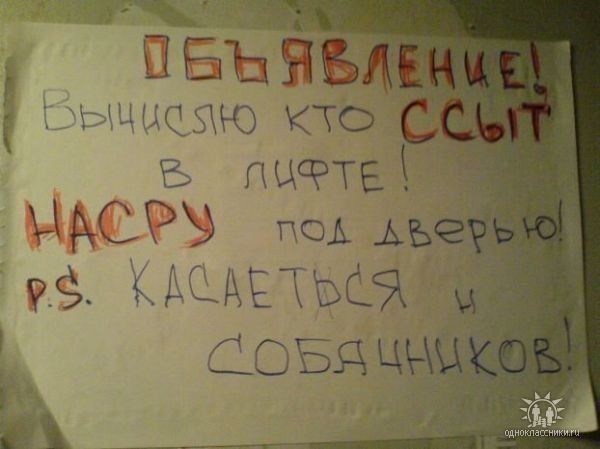 ОБЪЯВЛЕНИЕ!
Вычислю кто ССЫТ
в лифте!
НАСРУ под дверью!
P.S. КАСАЕТЬСЯ и
СОБАЧНИКОВ!
одноклассники.ru